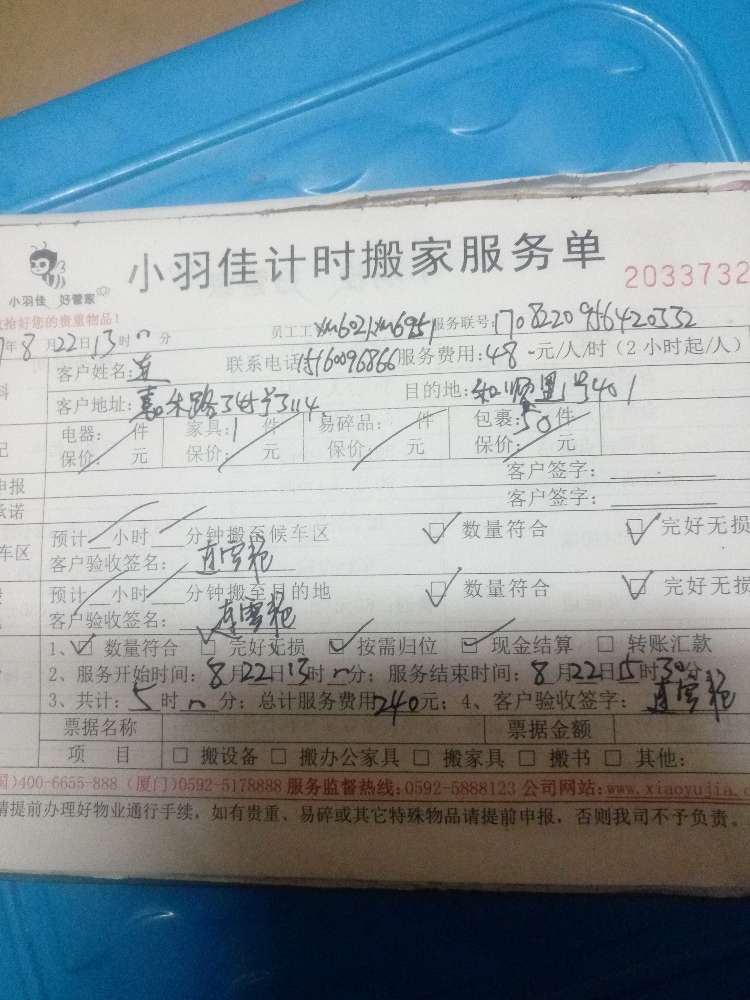 小羽佳计时搬家服务单
2033732
小羽佳 好管家
好您的贵重物品！
年8月22日13时 分 员工工 xm6021xm6951 服务联号：1708220956420332
客户姓名：连 联系电话15160096866 服务费用：48元/人/时（2小时起/人）
客户地址：嘉禾路 号 目的地： 1号401
电器： 件 家具：1件 易碎品： 件 包裹：50件
保价： 元 保价： 元 保价： 元 保价： 元
申报 客户签字：
承诺 客户签字：
预计 小时 分钟搬至候车区 数量符合 完好无损
车区 客户验收签名：连雪艳
预计 小时 分钟搬至目的地 数量符合 完好无损
客户验收签名：连雪艳
1、 数量符合 完好无损 按需归位 现金结算 转账汇款
2、服务开始时间：8月22日13时 分；服务结束时间：8月22日15时30分
3、共计：5时 分；总计服务费用240元；4、客户验收签字：连雪艳
票据名称 票据金额
项 目 搬设备 搬办公家具 搬家具 搬书 其他：
国)400-6655-888 (厦门)0592-5178888 服务监督热线:0592-5888123 公司网站:www.xiaoyujia.c
请提前办理好物业通行手续，如有贵重、易碎或其它特殊物品请提前申报，否则我司不予负责。